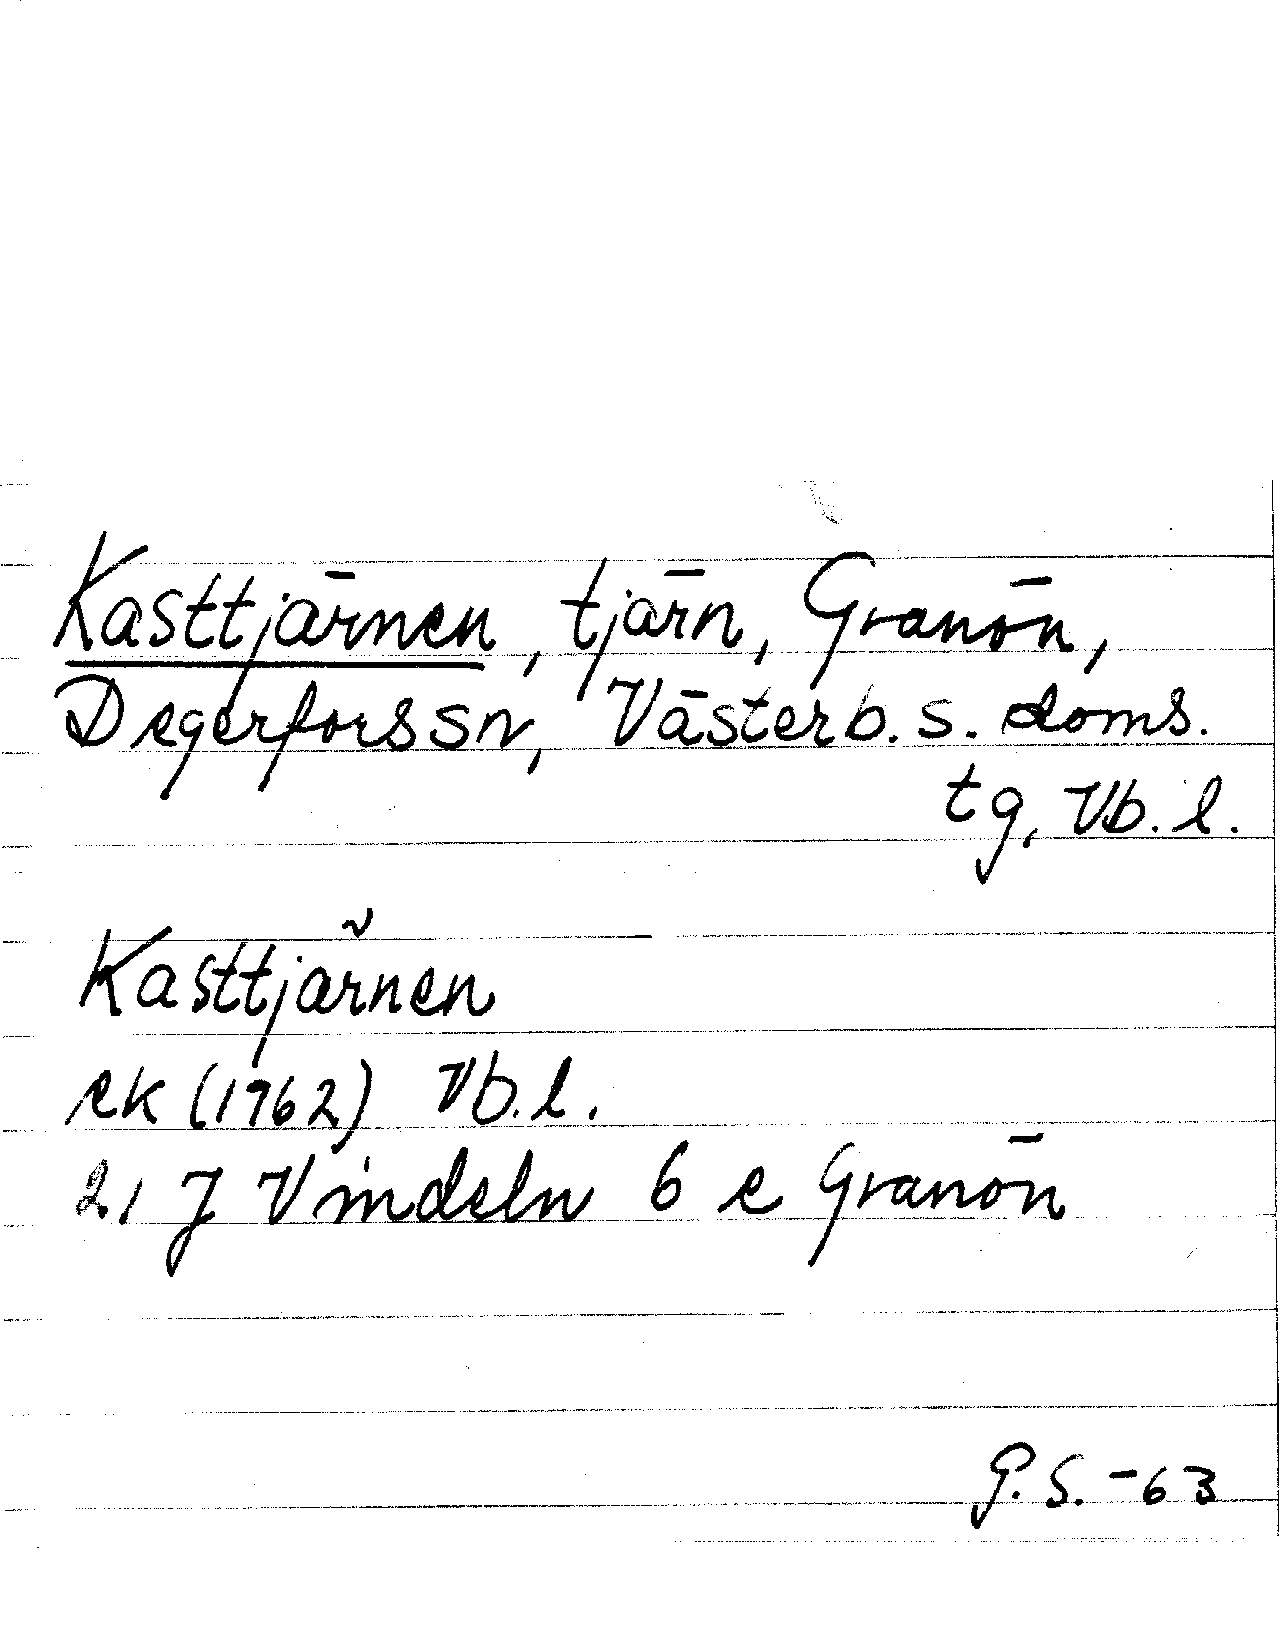 Kasttjärnen, tjärn, Granön,
Degerfors sn, Västerb. s. doms.
tg, Vb. l.
Kasttjärnen
ek (1962) Vb. l.
21 J Vindeln 6 e Granön
G. S. -63